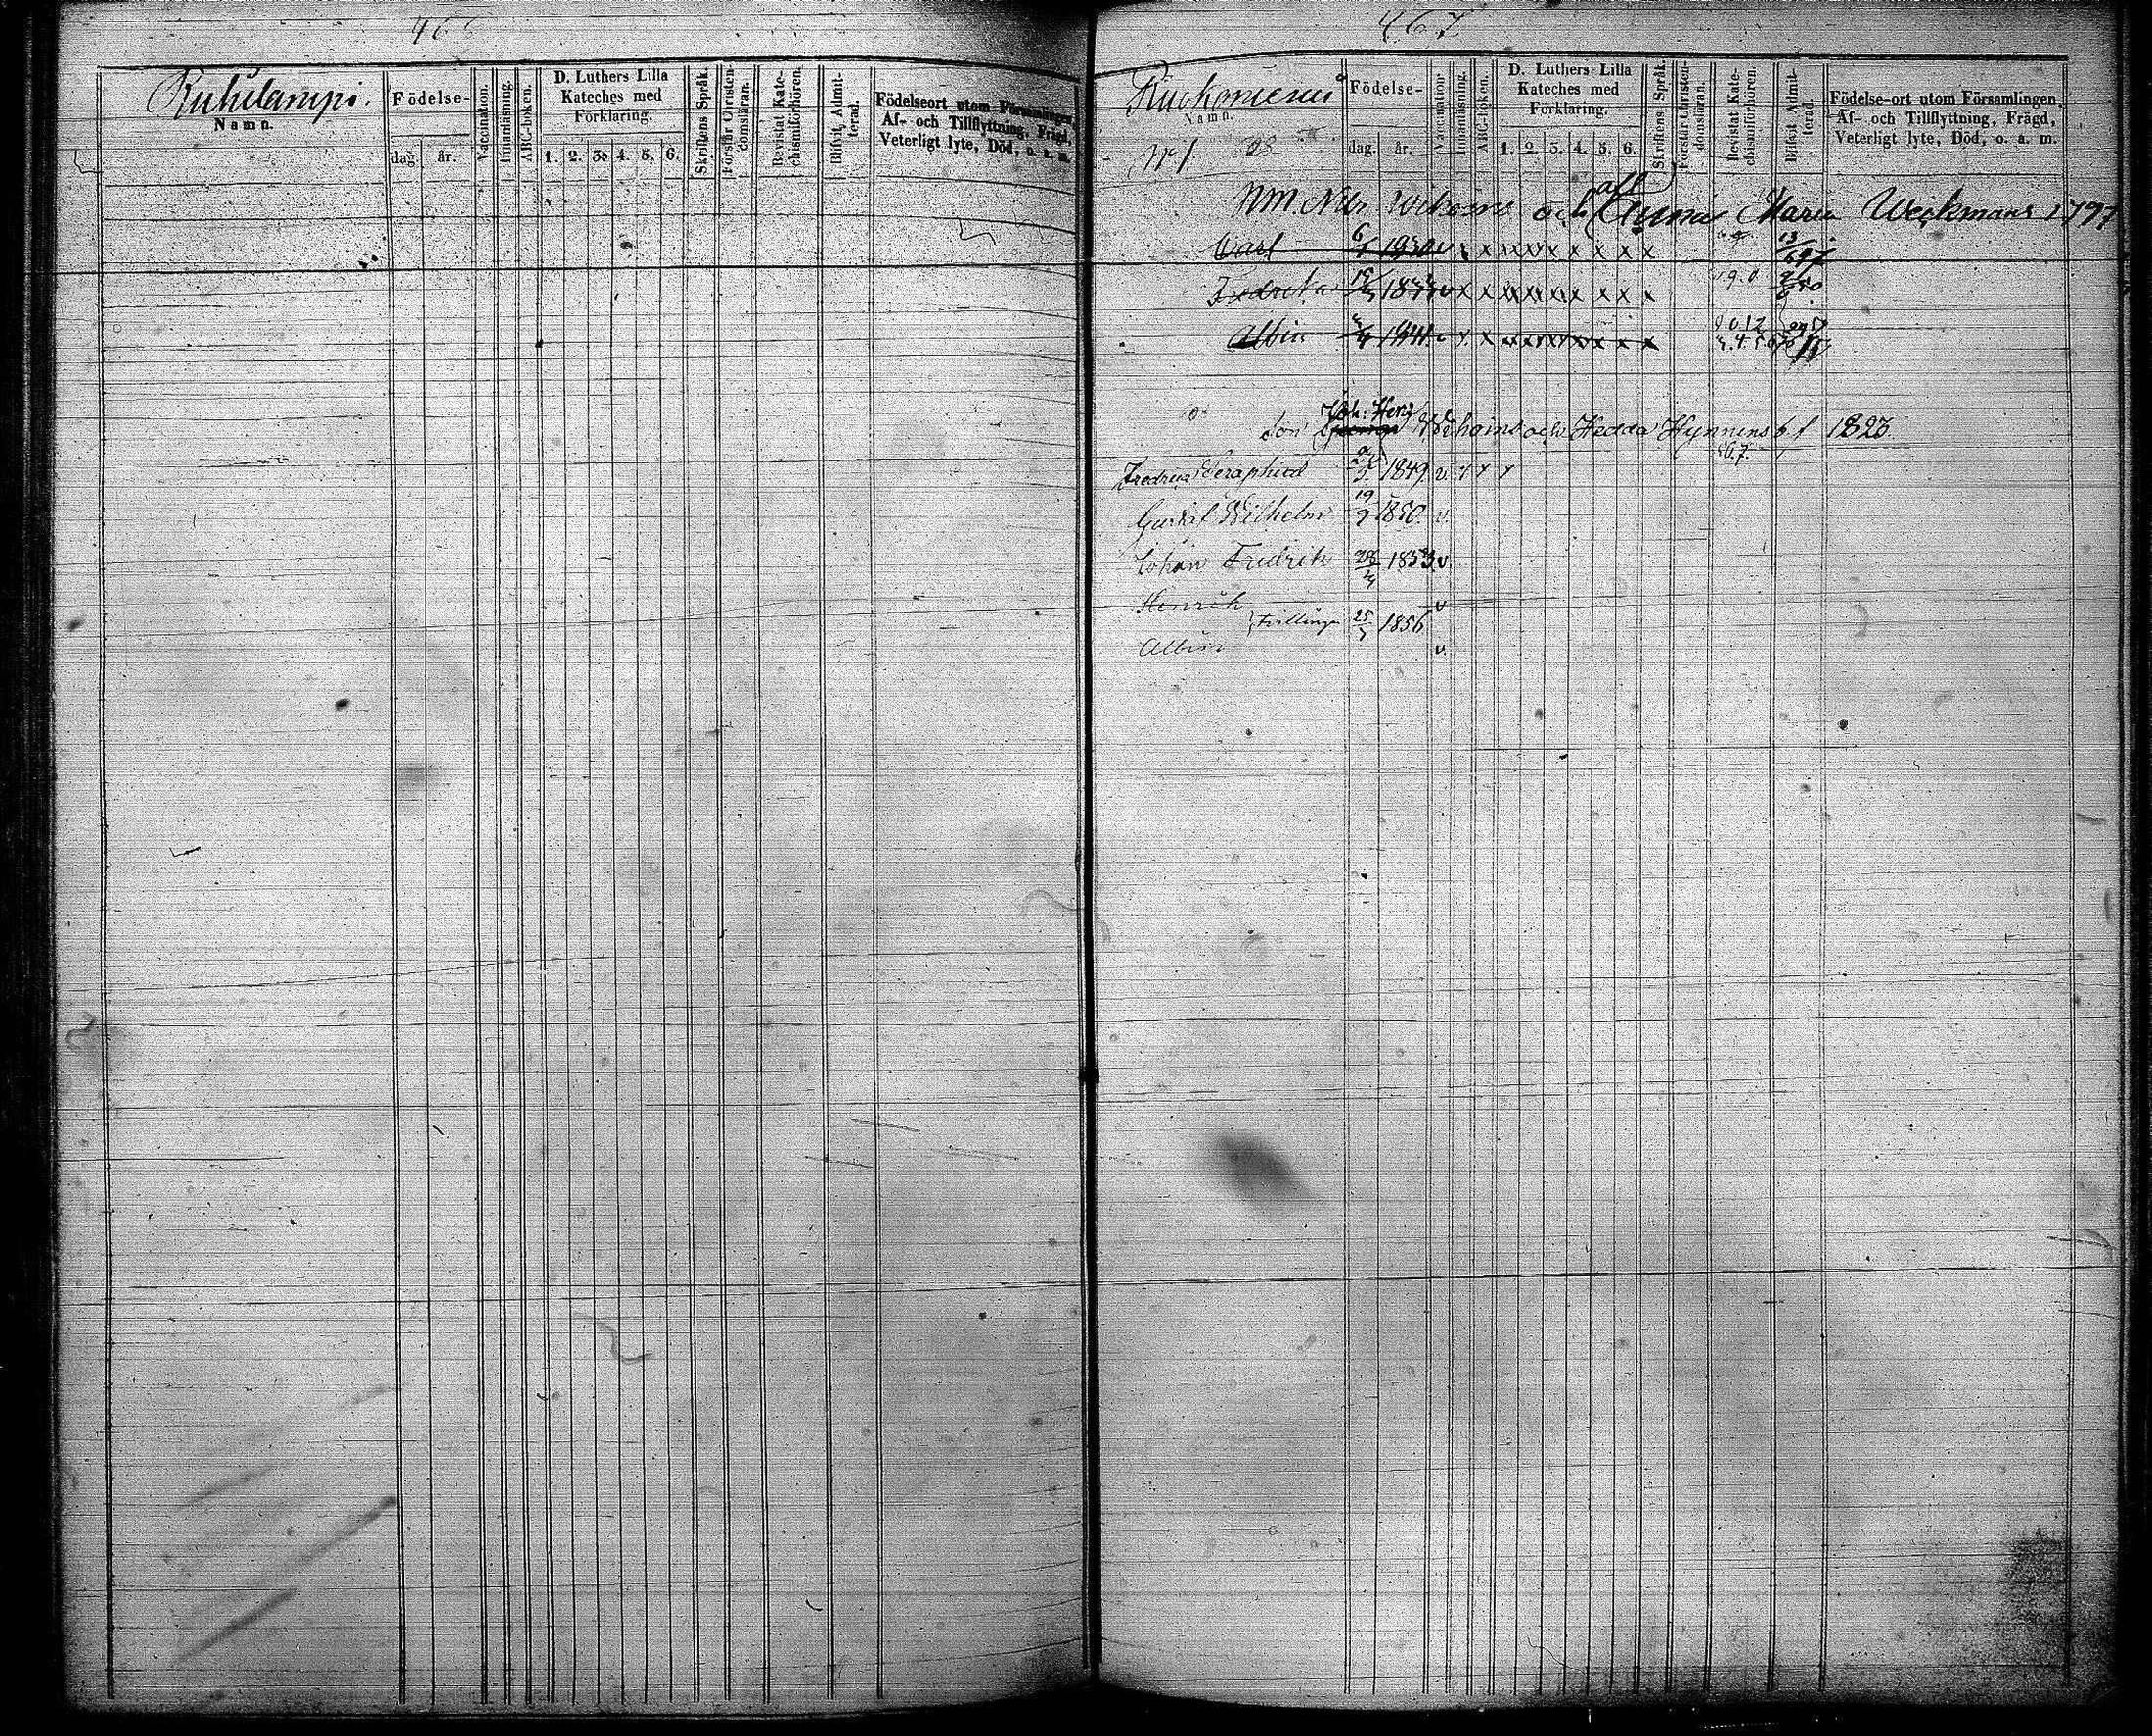 466
Ruhilampi.
Namn.
Födelse-
dag.
år.
Vaccination.
Innanläsning.
ABC-boken.
D. Luthers Lilla
Kateches med
Förklaring.
1. 2. 3. 4. 5. 6.
Skriftens Språk.
Förstår Christen-
domsläran.
Bevistat Kate-
chismiförhören.
Blifvit Admit-
terad.
Födelseort utom Församlingen,
Af- och Tillflyttning, Frägd,
Veterligt lyte, Död, o. a. m.
467
Namn.
N:o 1. 28
Födelse-
dag.
år.
Vaccination
Innanläsning.
ABC-boken.
D. Luthers Lilla
Kateches med
Förklaring.
1. 2. 3. 4. 5. 6.
Skriftens Språk.
Förstår Christen-
domsläran.
Bevistat Kate-
chismiförhören.
Blifvit Admit-
terad.
Födelse-ort utom Församlingen,
Af- och Tillflyttning, Frägd,
Veterligt lyte, Död, o. a. m.
Nm. Nils och Maria Weckmans 1797
Carl 6/1 1830 v x x x x x x x x x
Fredrika v x x x x x x x x x
Albin 1841 x x x x x x x x
Son Joh: Henr och Hedda Hynnins 1823.
Seraphina 1849. v. x x x
Gustaf Wilhelm 19/9 1850. v.
Johan Fredrik 28/4 1853. v
Henrik v
tvillingar 25/7 1856
Albin v.